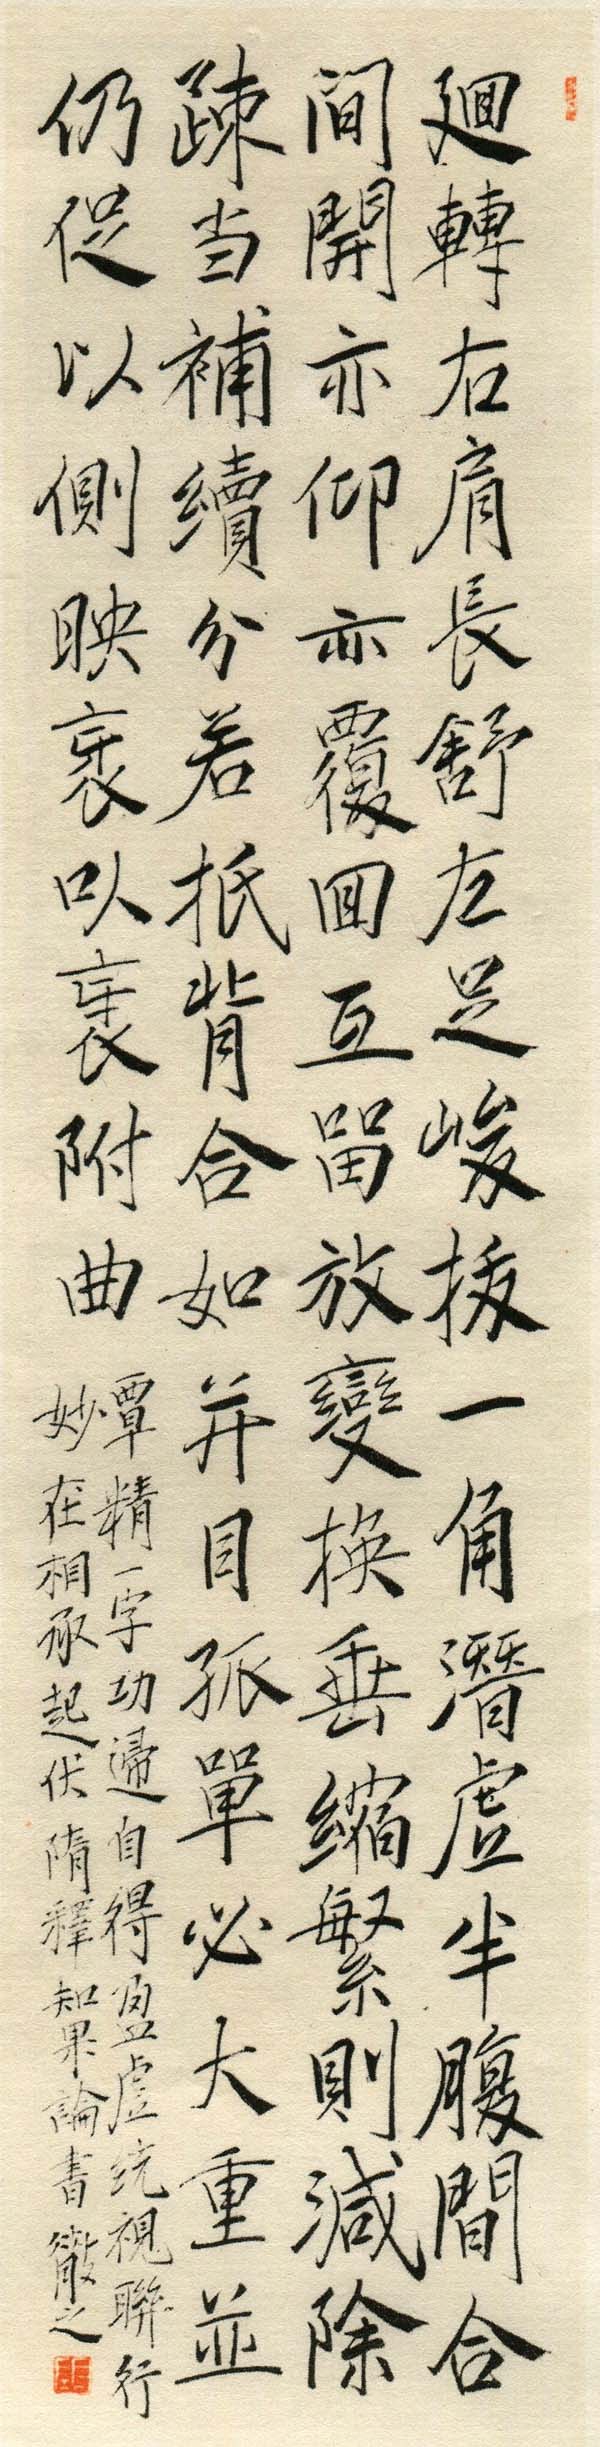 廻轉右肩長舒左足峻拔一角潛虛半腹間合
間開亦仰亦覆回互留放變換垂縮繁則減除
疎当補續分若抵背合如并目孤單必大重並
仍促以側映裹以裹附曲
覃精一字功歸自得盈虛統視聯行
妙在相承起伏隋釋智果論書徽之